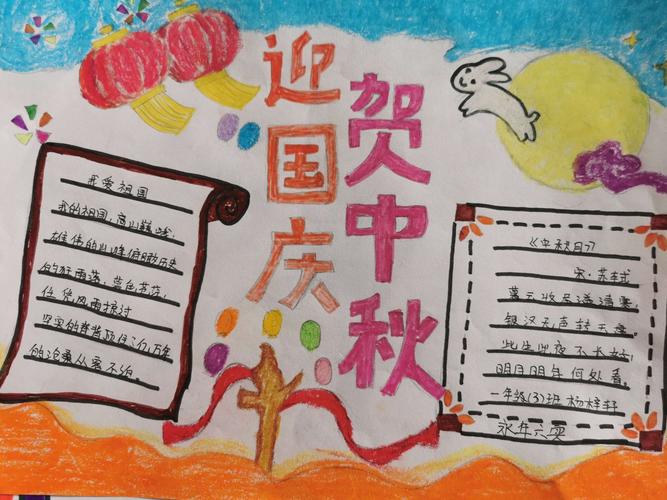 迎国庆
贺中秋
我爱祖国
我的祖国,高山巍峨,
雄伟的山峰俯瞰历史
的狂雨落,暮色苍茫,
任凭风雨掠过
坚实的脊背顶住了,万年
的沧桑从容不迫。
《中秋月》
宋·苏轼
暮云收尽溢清寒
银汉无声转玉盘。
此生此夜不长好,
明月明年何处看。
一年级(3)班 杨梓轩
永年六实